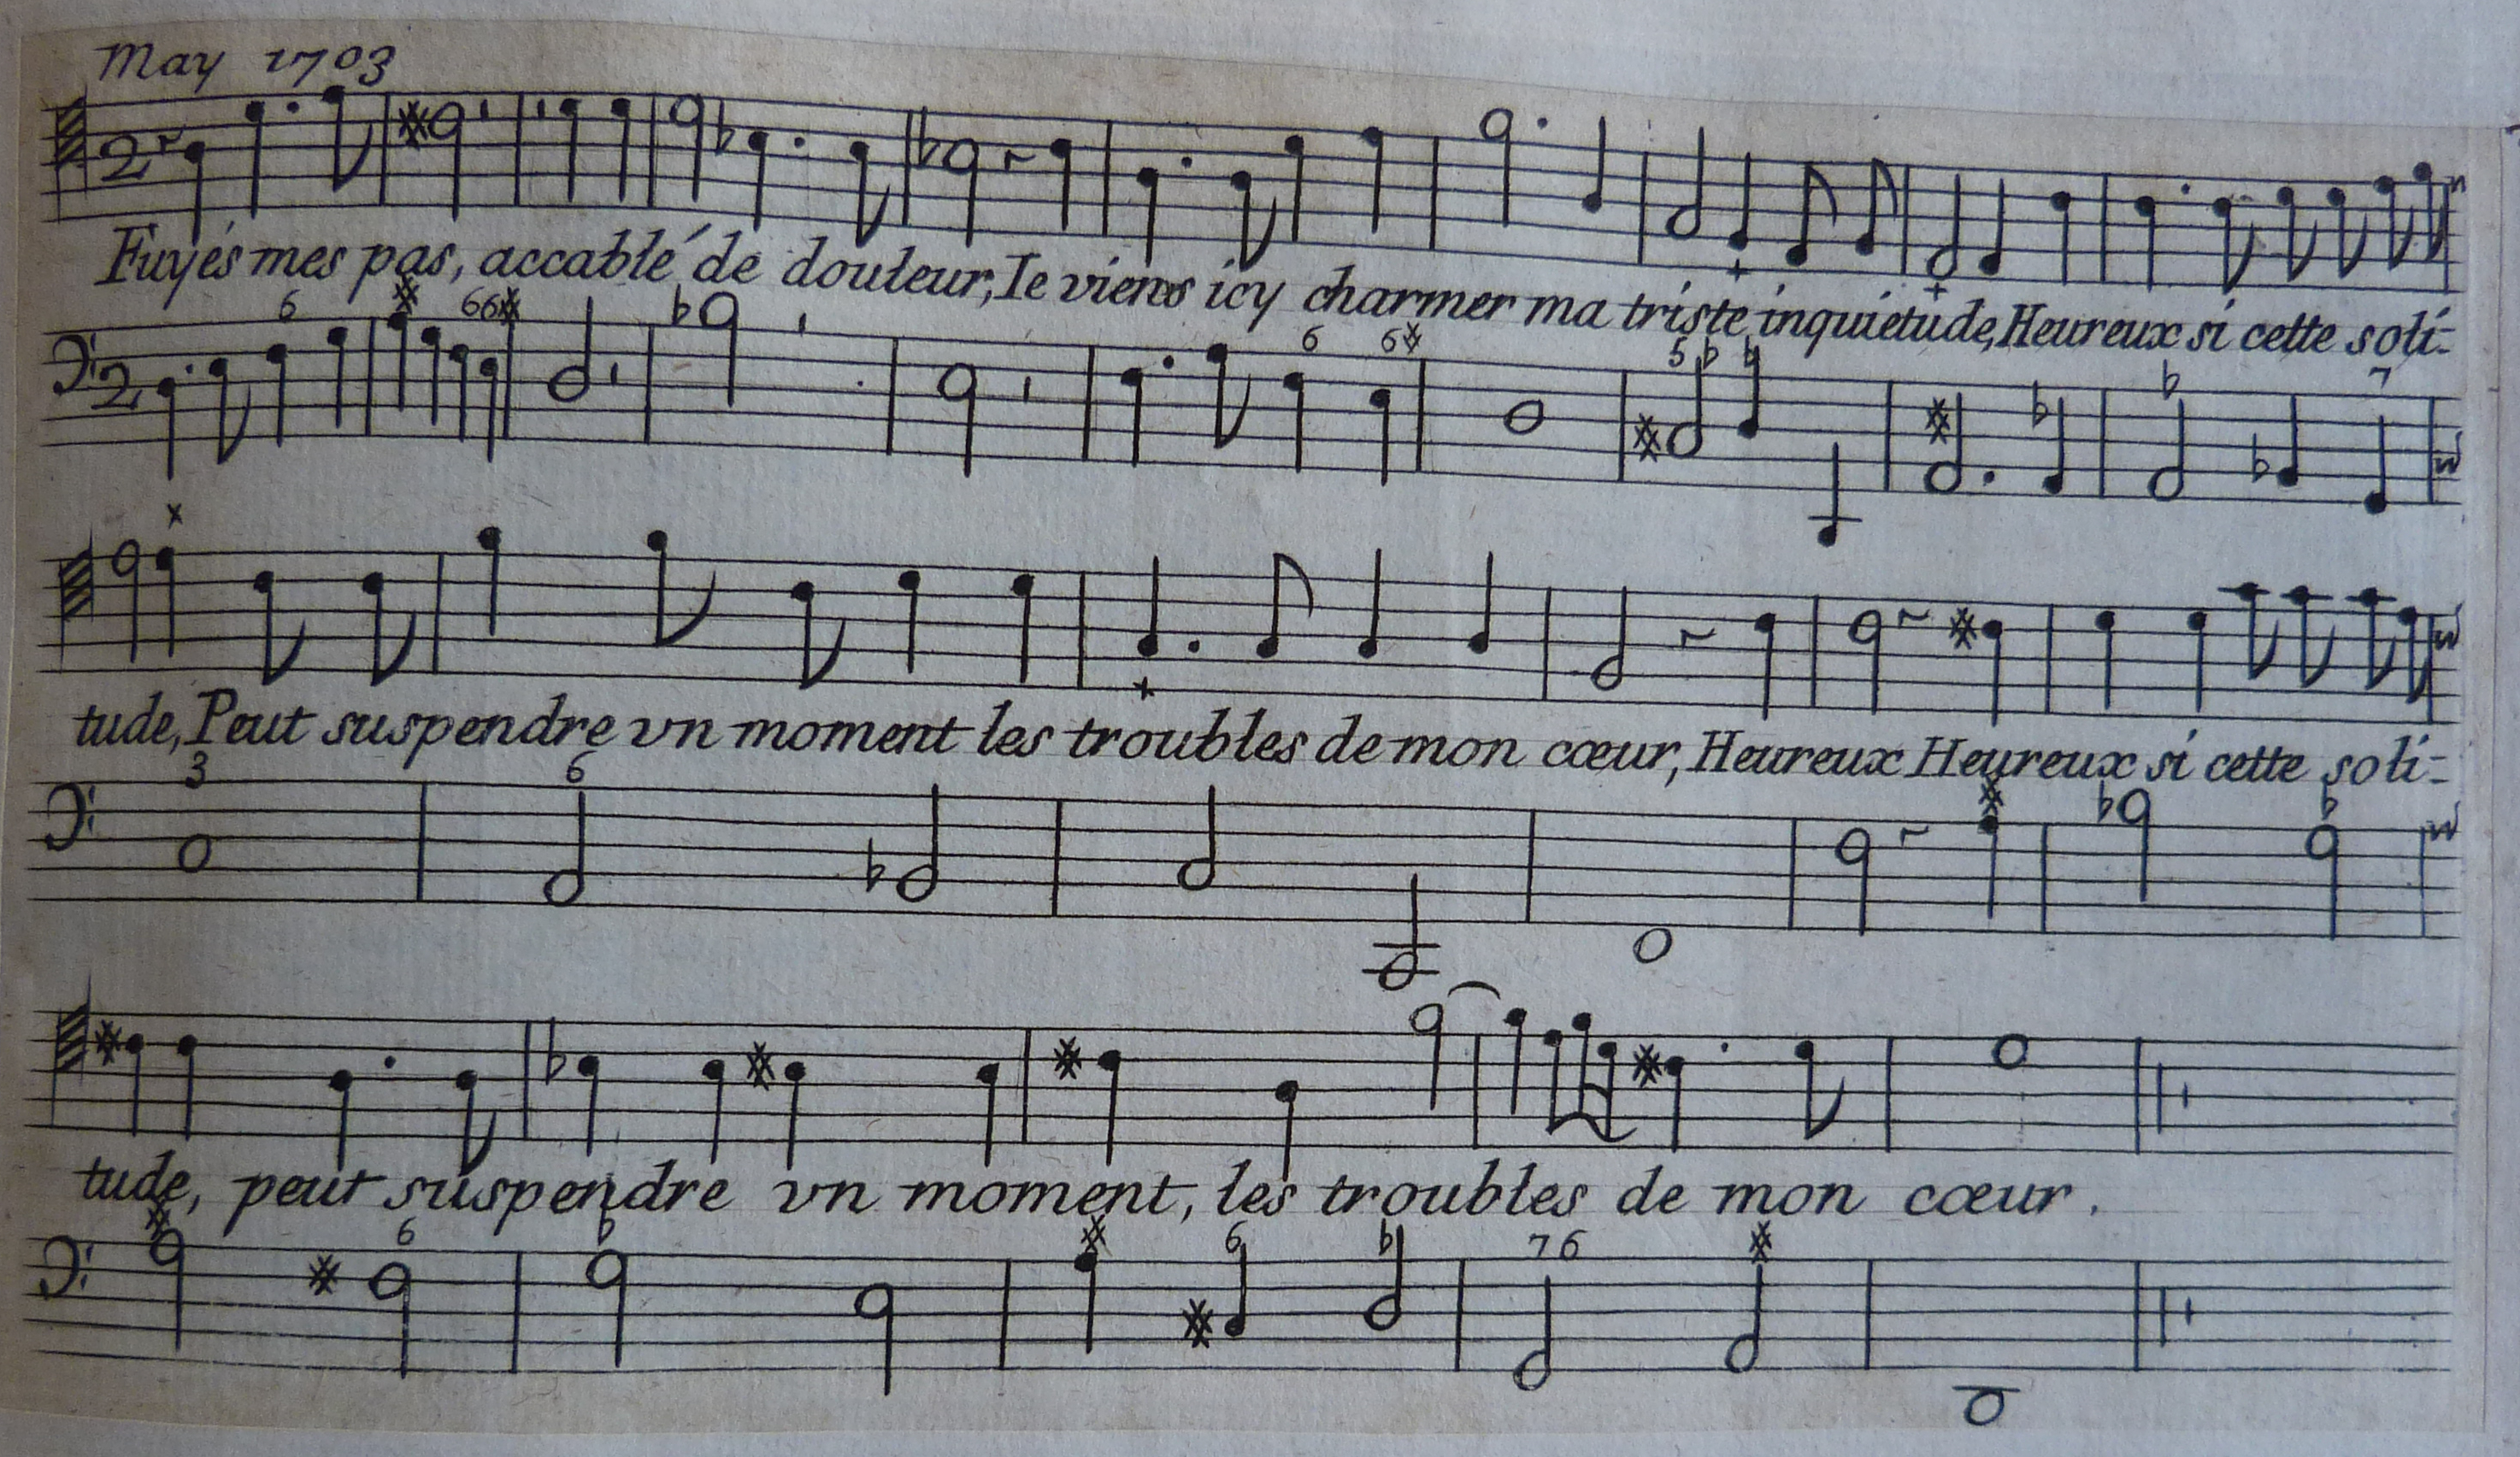 May 1703
2
Fuyés mes pas, accablé de douleur, Ie viens icy charmer ma triste inquietude, Heureux si cette soli-
6 6 6 6 6 5 7
2
tude, Peut suspendre vn moment les troubles de mon cœur, Heureux Heureux si cette soli-
3 6
tude, peut suspendre vn moment, les troubles de mon cœur.
6 6 7 6